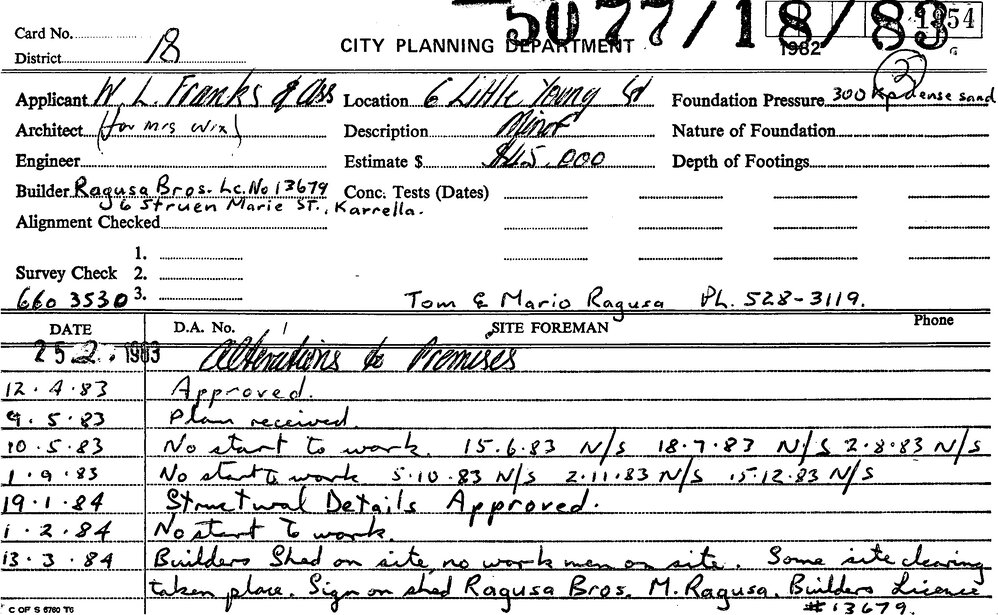 5077/18/83 1354
Card No.
District 18 CITY PLANNING DEPARTMENT 1982 G
3
Applicant W. L. Franks & Ass Location 6 Little Young St Foundation Pressure 300 Kpa dense sand
Architect (for Mrs Wix) Description Minor Nature of Foundation
Engineer Estimate $ $45,000 Depth of Footings
Builder Ragusa Bros. Lc. No 13679 Conc. Tests (Dates)
36 Struen Marie ST., Karrella.
Alignment Checked
1.
Survey Check 2.
660 3530 3. Tom & Mario Ragusa PH. 528-3119.
DATE D.A. No. / SITE FOREMAN Phone
25 2. 1983 Alterations to Premises
12.4.83 Approved.
9.5.83 Plan received.
10.5.83 No start to work. 15.6.83 N/S 18.7.83 N/S 2.8.83 N/S
1.9.83 No start to work 5.10.83 N/S 2.11.83 N/S 15.12.83 N/S
19.1.84 Structural Details Approved.
1.2.84 No start to work.
13.3.84 Builders Shed on site, no work men on site. Some site clearing
taken place. Sign on shed Ragusa Bros. M. Ragusa. Builders Licence
C OF S 6760 T6 #13679.